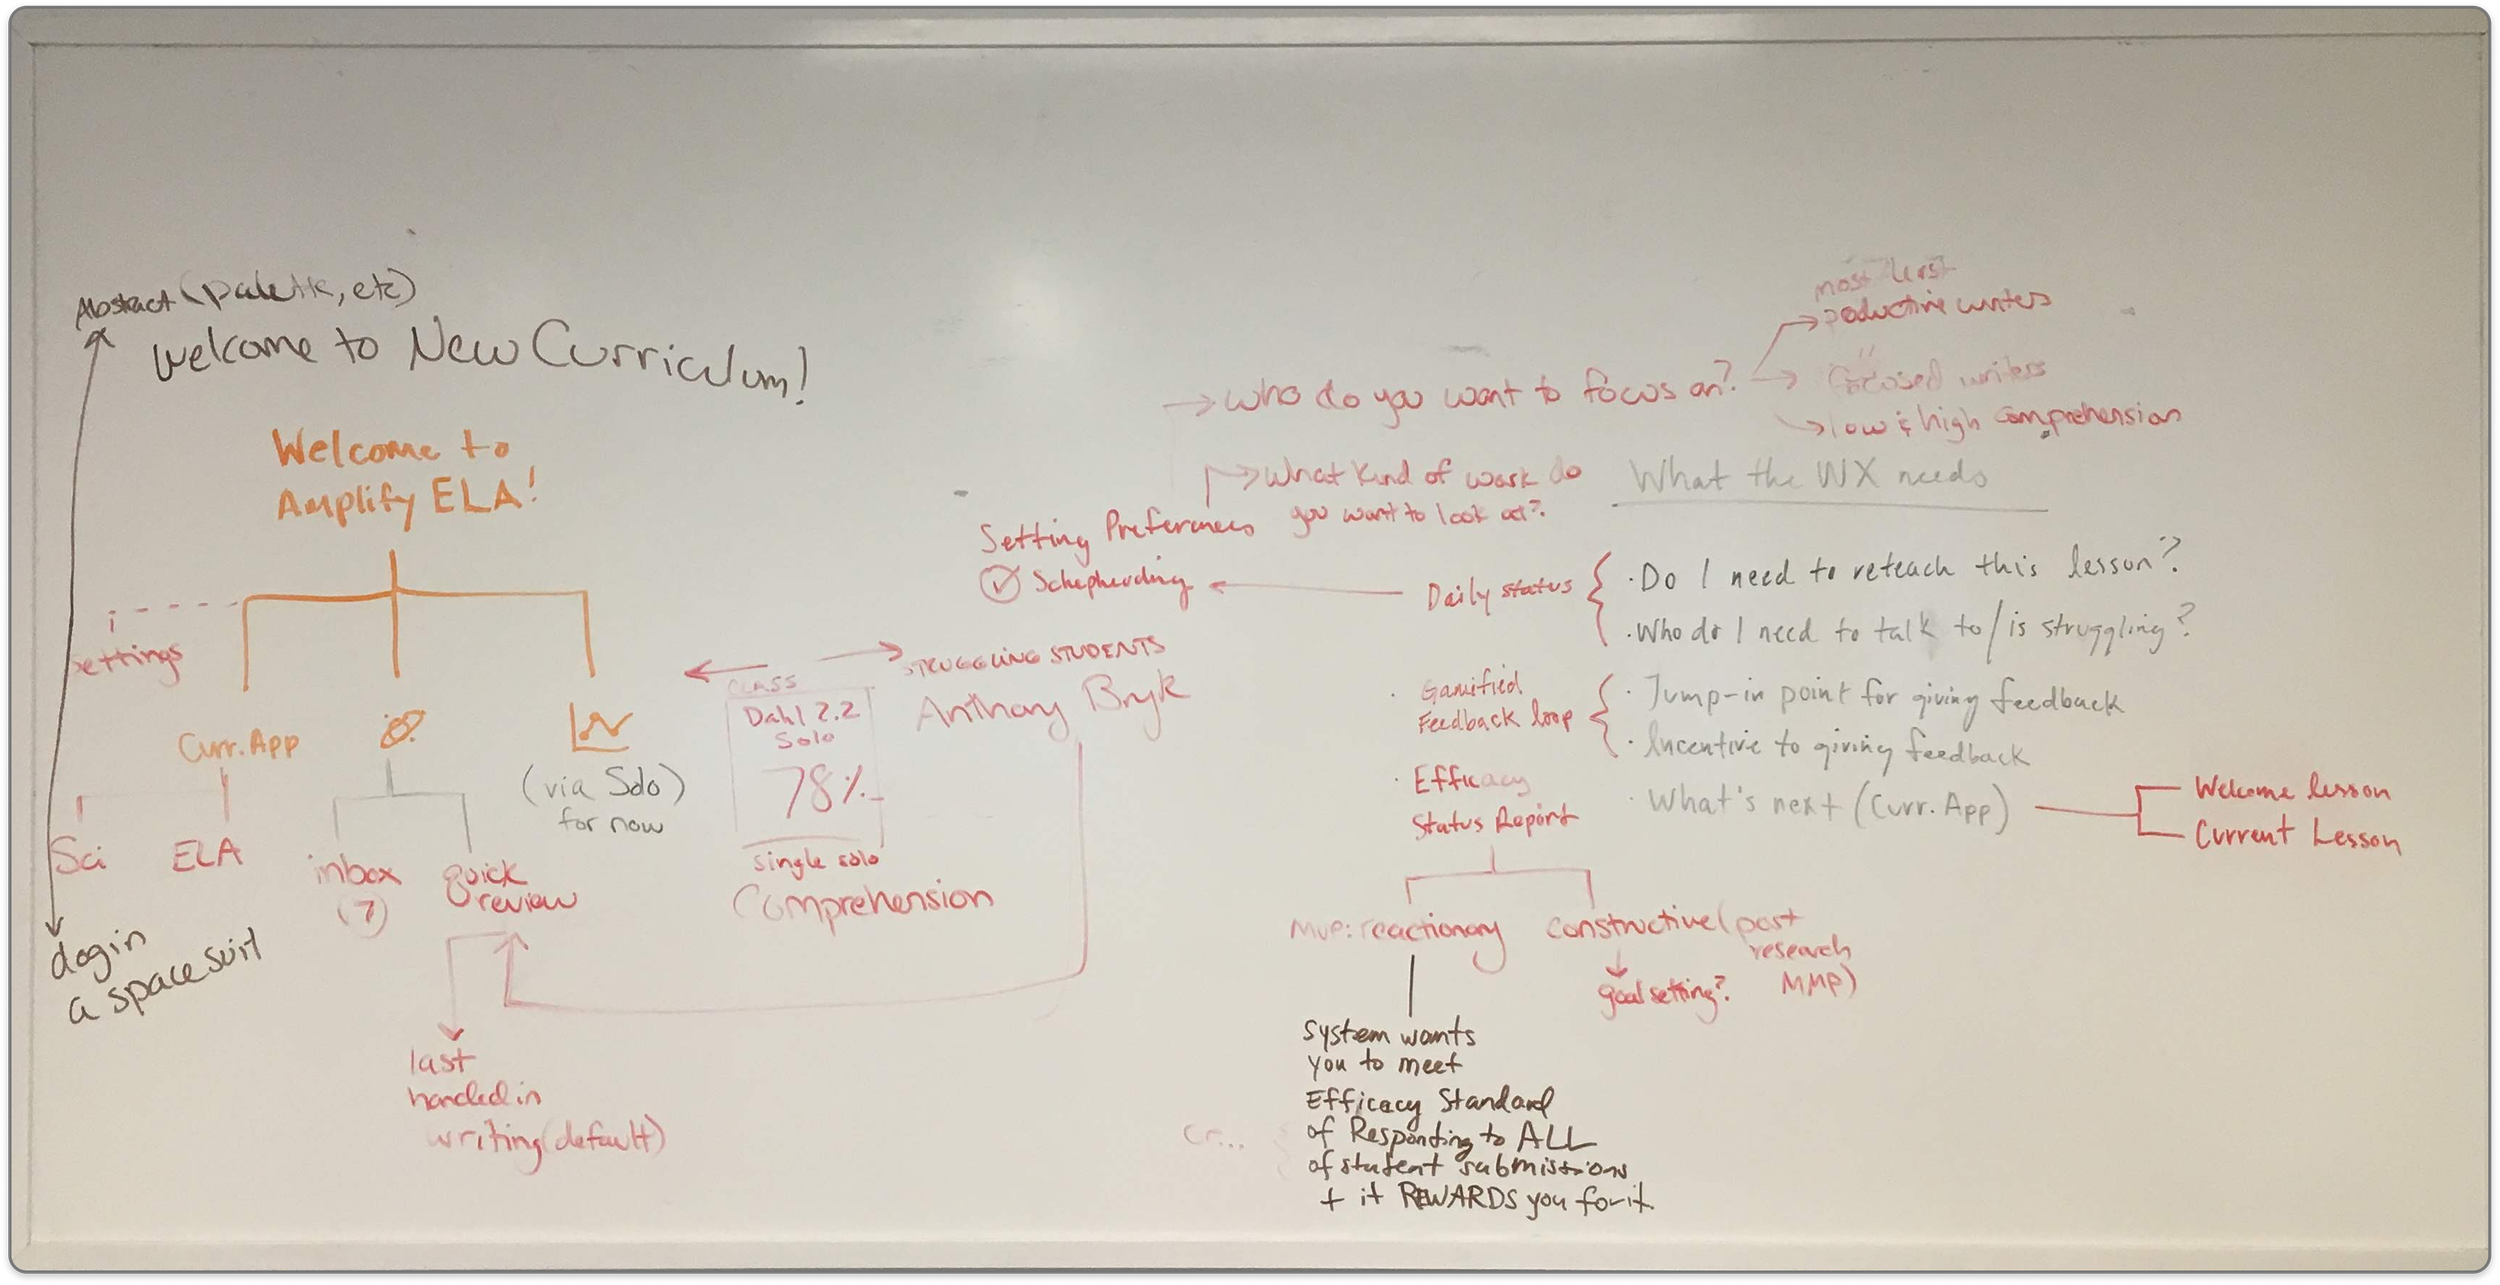 Abstract (palette, etc)
Welcome to New Curriculum!
Welcome to
Amplify ELA!
settings
Curr. App
(via Solo)
for now
Sci
ELA
inbox
(7)
quick
review
last
handed in
writing (default)
dog in
a space suit
CLASS
Dahl 2.2
Solo
78%
single solo
Comprehension
STRUGGLING STUDENTS
Anthony Bryk
Setting Preferences
Schepherding
Who do you want to focus on?
most least
productive writers
" focused writers
low & high comprehension
What kind of work do
you want to look at?
What the WX needs
Daily status
· Do I need to reteach this lesson?
· Who do I need to talk to / is struggling?
· Gamified
Feedback loop
· Jump-in point for giving feedback
· Incentive to giving feedback
· Efficacy
Status Report
· What's next (Curr. App)
Welcome lesson
Current Lesson
MVP: reactionary
constructive (post
research
MMP)
goal setting?
System wants
you to meet
Efficacy Standard
of Responding to ALL
of student submissions
+ it REWARDS you for it.